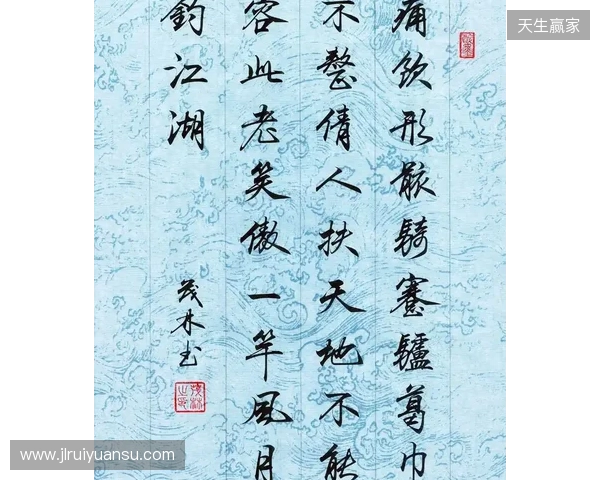 天生赢家
痛饮形骸騎蹇驢葛巾
不整倩人扶天地不能
容此老笑傲一竿風月
釣江湖
茂林书
www.jlruiyuansu.com